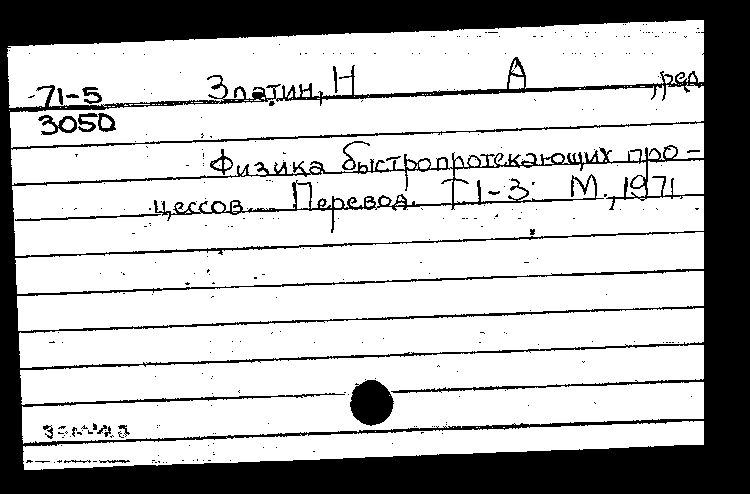 71-5 Златин, Н А ,ред.
3050
Физика быстропротекающих про-
цессов. Перевод. Т 1-3. М., 1971